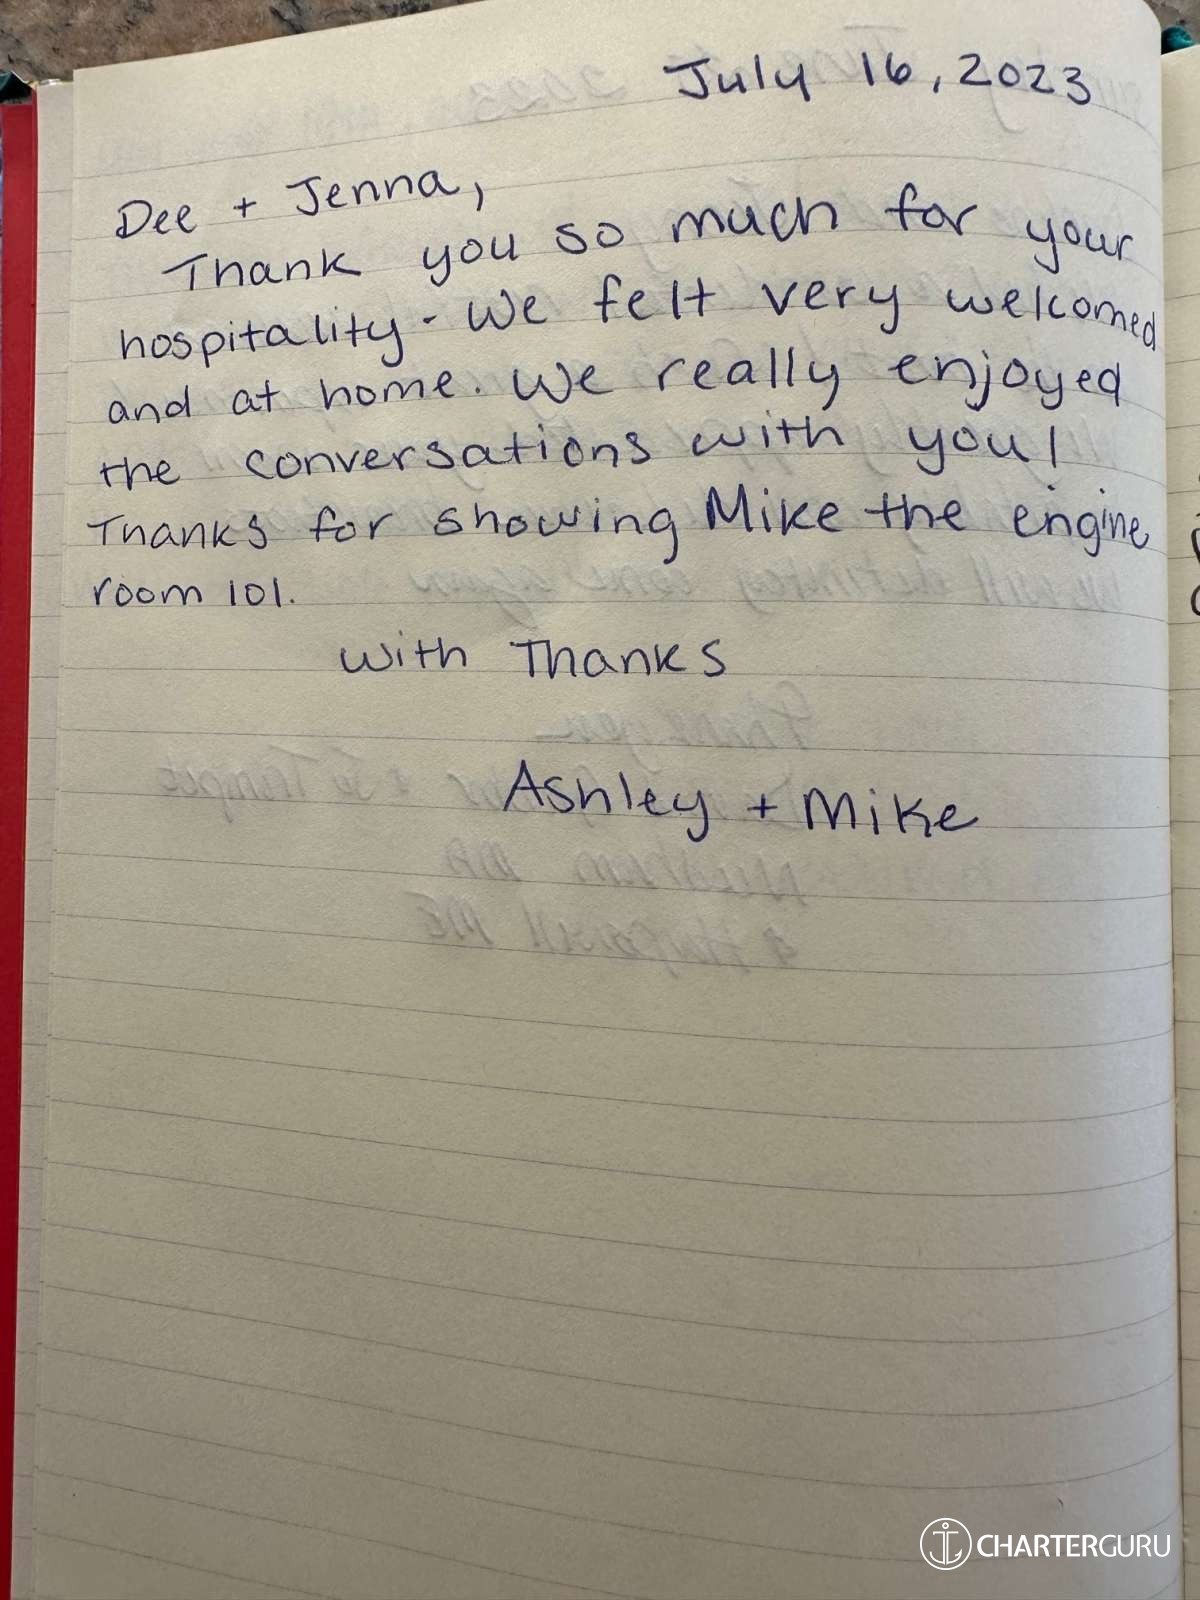 July 16, 2023
Dee + Jenna,
Thank you so much for your
hospitality. We felt very welcomed
and at home. We really enjoyed
the conversations with you!
Thanks for showing Mike the engine
room 101.
with Thanks
Ashley + Mike
CHARTERGURU